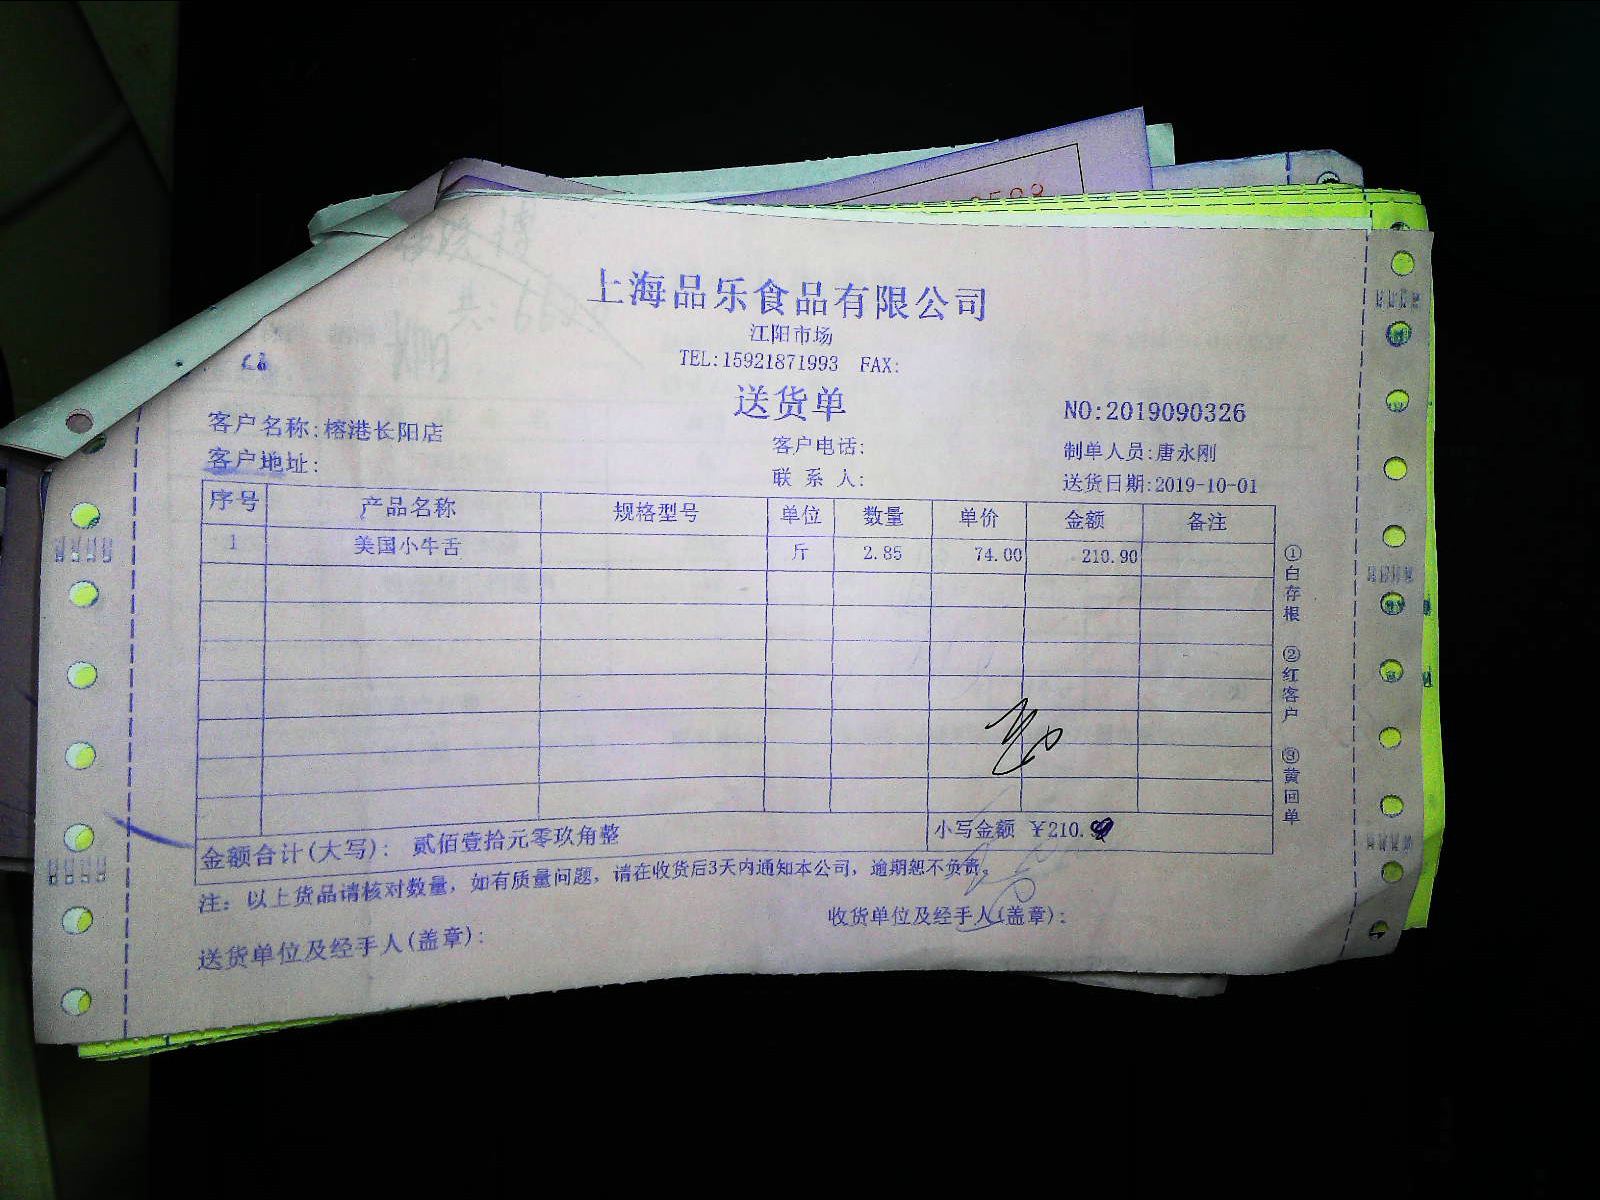 上海品乐食品有限公司
江阳市场
TEL:15921871993 FAX:
送货单
NO:2019090326
客户名称:榕港长阳店
客户电话:
制单人员:唐永刚
客户地址:
联 系 人:
送货日期:2019-10-01
序号 产品名称 规格型号 单位 数量 单价 金额 备注
1 美国小牛舌 斤 2.85 74.00 210.90
金额合计(大写): 贰佰壹拾元零玖角整 小写金额 ¥210.
注: 以上货品请核对数量, 如有质量问题, 请在收货后3天内通知本公司, 逾期恕不负责。
送货单位及经手人(盖章):
收货单位及经手人(盖章):
①白存根 ②红客户 ③黄回单